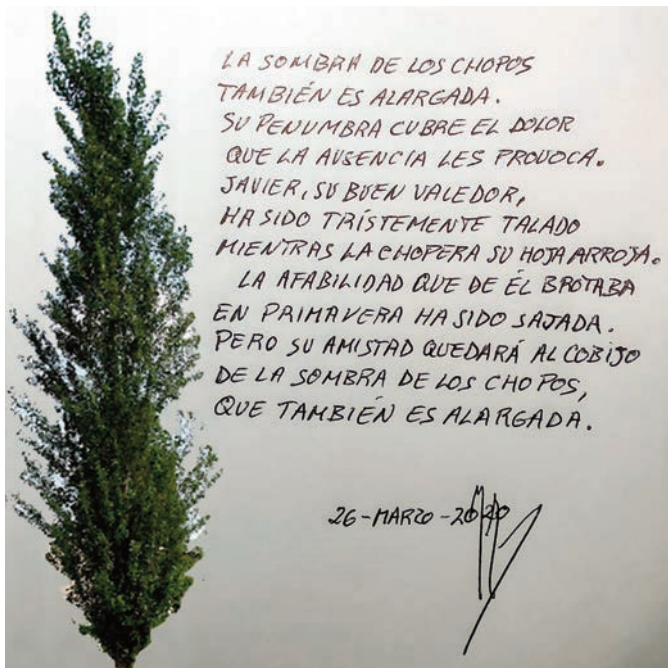 LA SOMBRA DE LOS CHOPOS
TAMBIÉN ES ALARGADA.
SU PENUMBRA CUBRE EL DOLOR
QUE LA AUSENCIA LES PROVOCA.
JAVIER, SU BUEN VALEDOR,
HA SIDO TRÍSTEMENTE TALADO
MIENTRAS LA CHOPERA SU HOJA ARROJA.
LA AFABILIDAD QUE DE ÉL BROTABA
EN PRIMAVERA HA SIDO SAJADA.
PERO SU AMISTAD QUEDARÁ AL COBIJO
DE LA SOMBRA DE LOS CHOPOS,
QUE TAMBIÉN ES ALARGADA.
26-MARZO-2020